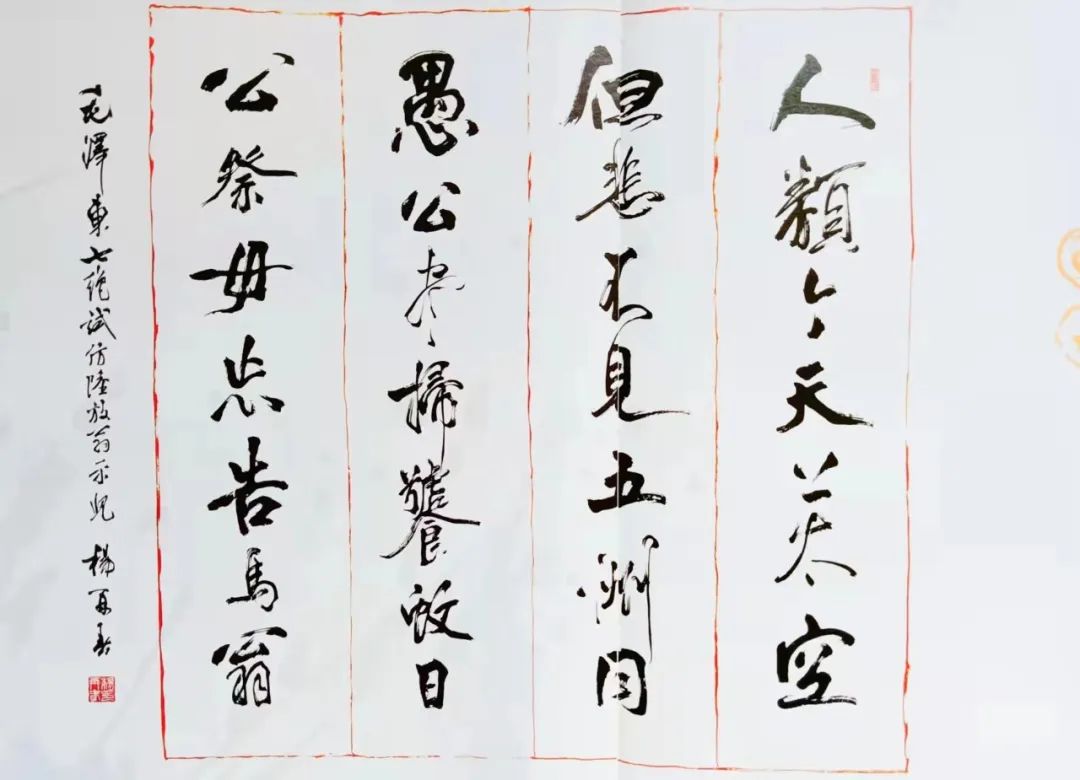 人類今天上太空
但悲不見五洲同
愚公尽掃饕蚊日
公祭毋忘告馬翁
毛澤東七絕試仿陸放翁示兒 楊再春